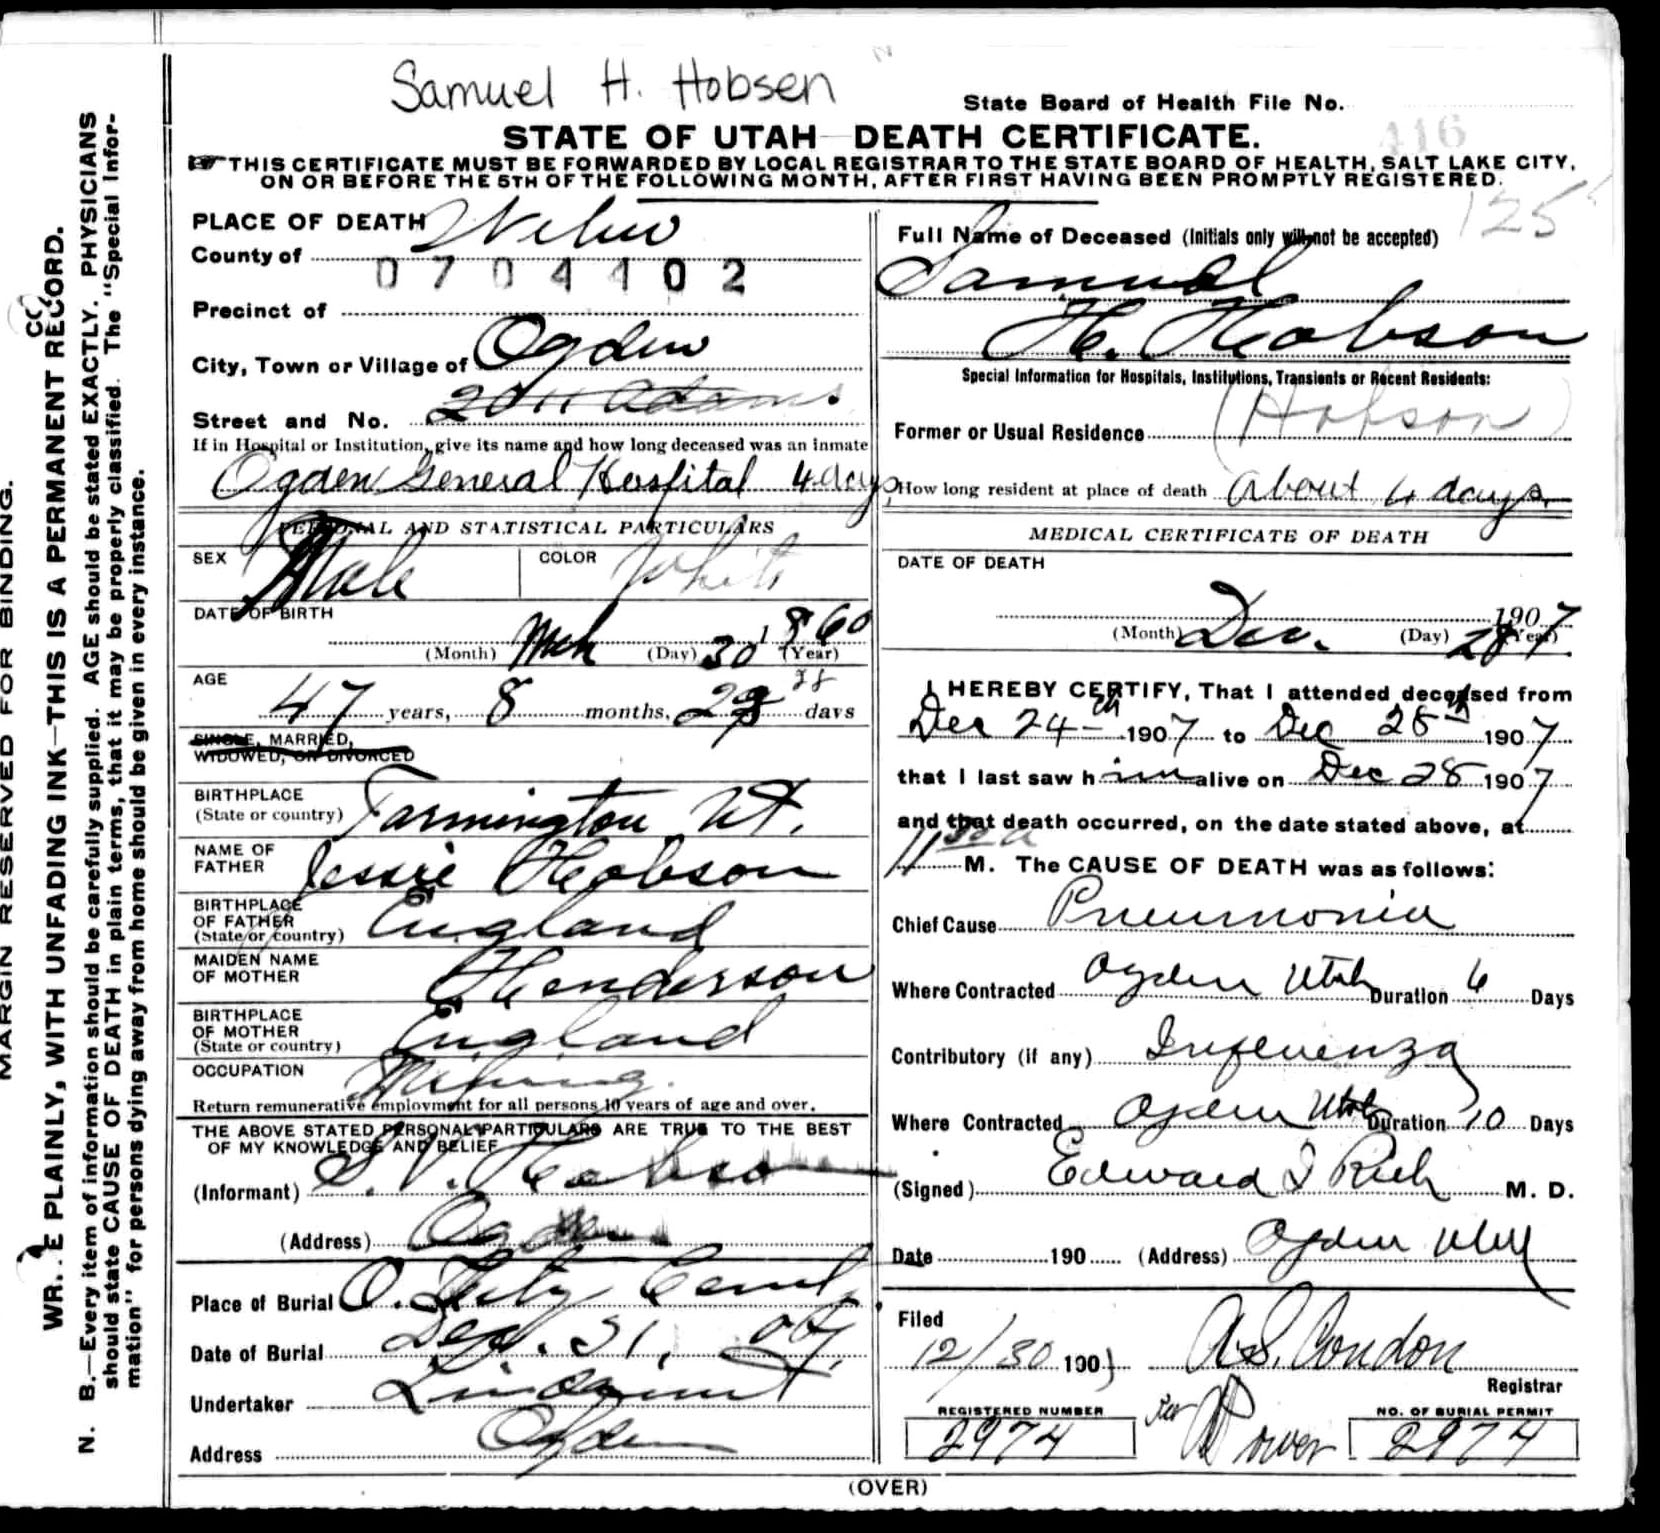 Samuel H. Hobsen
State Board of Health File No.
416
STATE OF UTAH DEATH CERTIFICATE.
THIS CERTIFICATE MUST BE FORWARDED BY LOCAL REGISTRAR TO THE STATE BOARD OF HEALTH, SALT LAKE CITY,
ON OR BEFORE THE 5TH OF THE FOLLOWING MONTH, AFTER FIRST HAVING BEEN PROMPTLY REGISTERED.
MARGIN RESERVED FOR BINDING.
WR. E PLAINLY, WITH UNFADING INK—THIS IS A PERMANENT RECORD.
N. B.—Every item of information should be carefully supplied. AGE should be stated EXACTLY. PHYSICIANS
should state CAUSE OF DEATH in plain terms, that it may be properly classified. The "Special Infor-
mation" for persons dying away from home should be given in every instance.
PLACE OF DEATH
County of Weber
0704402
Precinct of
City, Town or Village of Ogden
Street and No. 2011 Adams.
If in Hospital or Institution, give its name and how long deceased was an inmate
Ogden General Hospital 4 days
PERSONAL AND STATISTICAL PARTICULARS
SEX Male COLOR White
DATE OF BIRTH
(Month) Mch (Day) 30 1860 (Year)
AGE
47 years, 8 months, 28 days
SINGLE, MARRIED,
WIDOWED, OR DIVORCED
BIRTHPLACE
(State or country) Farmington Ut.
NAME OF
FATHER Jessie Hobson
BIRTHPLACE
OF FATHER
(State or country) England
MAIDEN NAME
OF MOTHER Henderson
BIRTHPLACE
OF MOTHER
(State or country) England
OCCUPATION Mining.
Return remunerative employment for all persons 10 years of age and over.
THE ABOVE STATED PERSONAL PARTICULARS ARE TRUE TO THE BEST
OF MY KNOWLEDGE AND BELIEF
(Informant) S. V. Hobson
(Address) Ogden
Place of Burial O. City Cemt.
Date of Burial Dec. 31, 07.
Undertaker Lindquist
Address Ogden
125
Full Name of Deceased (Initials only will not be accepted)
Samuel
H. Hobson
Special Information for Hospitals, Institutions, Transients or Recent Residents:
(Hobson)
Former or Usual Residence
How long resident at place of death About 4 days.
MEDICAL CERTIFICATE OF DEATH
DATE OF DEATH
1907
(Month) Dec. (Day) 28 (Year)
I HEREBY CERTIFY, That I attended deceased from
Dec 24th 1907 to Dec 28th 1907
that I last saw him alive on Dec 28 1907
and that death occurred, on the date stated above, at
11 30 a M. The CAUSE OF DEATH was as follows:
Chief Cause Pneumonia
Where Contracted Ogden Utah Duration 6 Days
Contributory (if any) Influenza
Where Contracted Ogden Utah Duration 10 Days
(Signed) Edward I Rich M. D.
Date 190 (Address) Ogden Utah
Filed
12/30 1907 A. S. Condon
Registrar
REGISTERED NUMBER
2974
per Power
NO. OF BURIAL PERMIT
2974
(OVER)